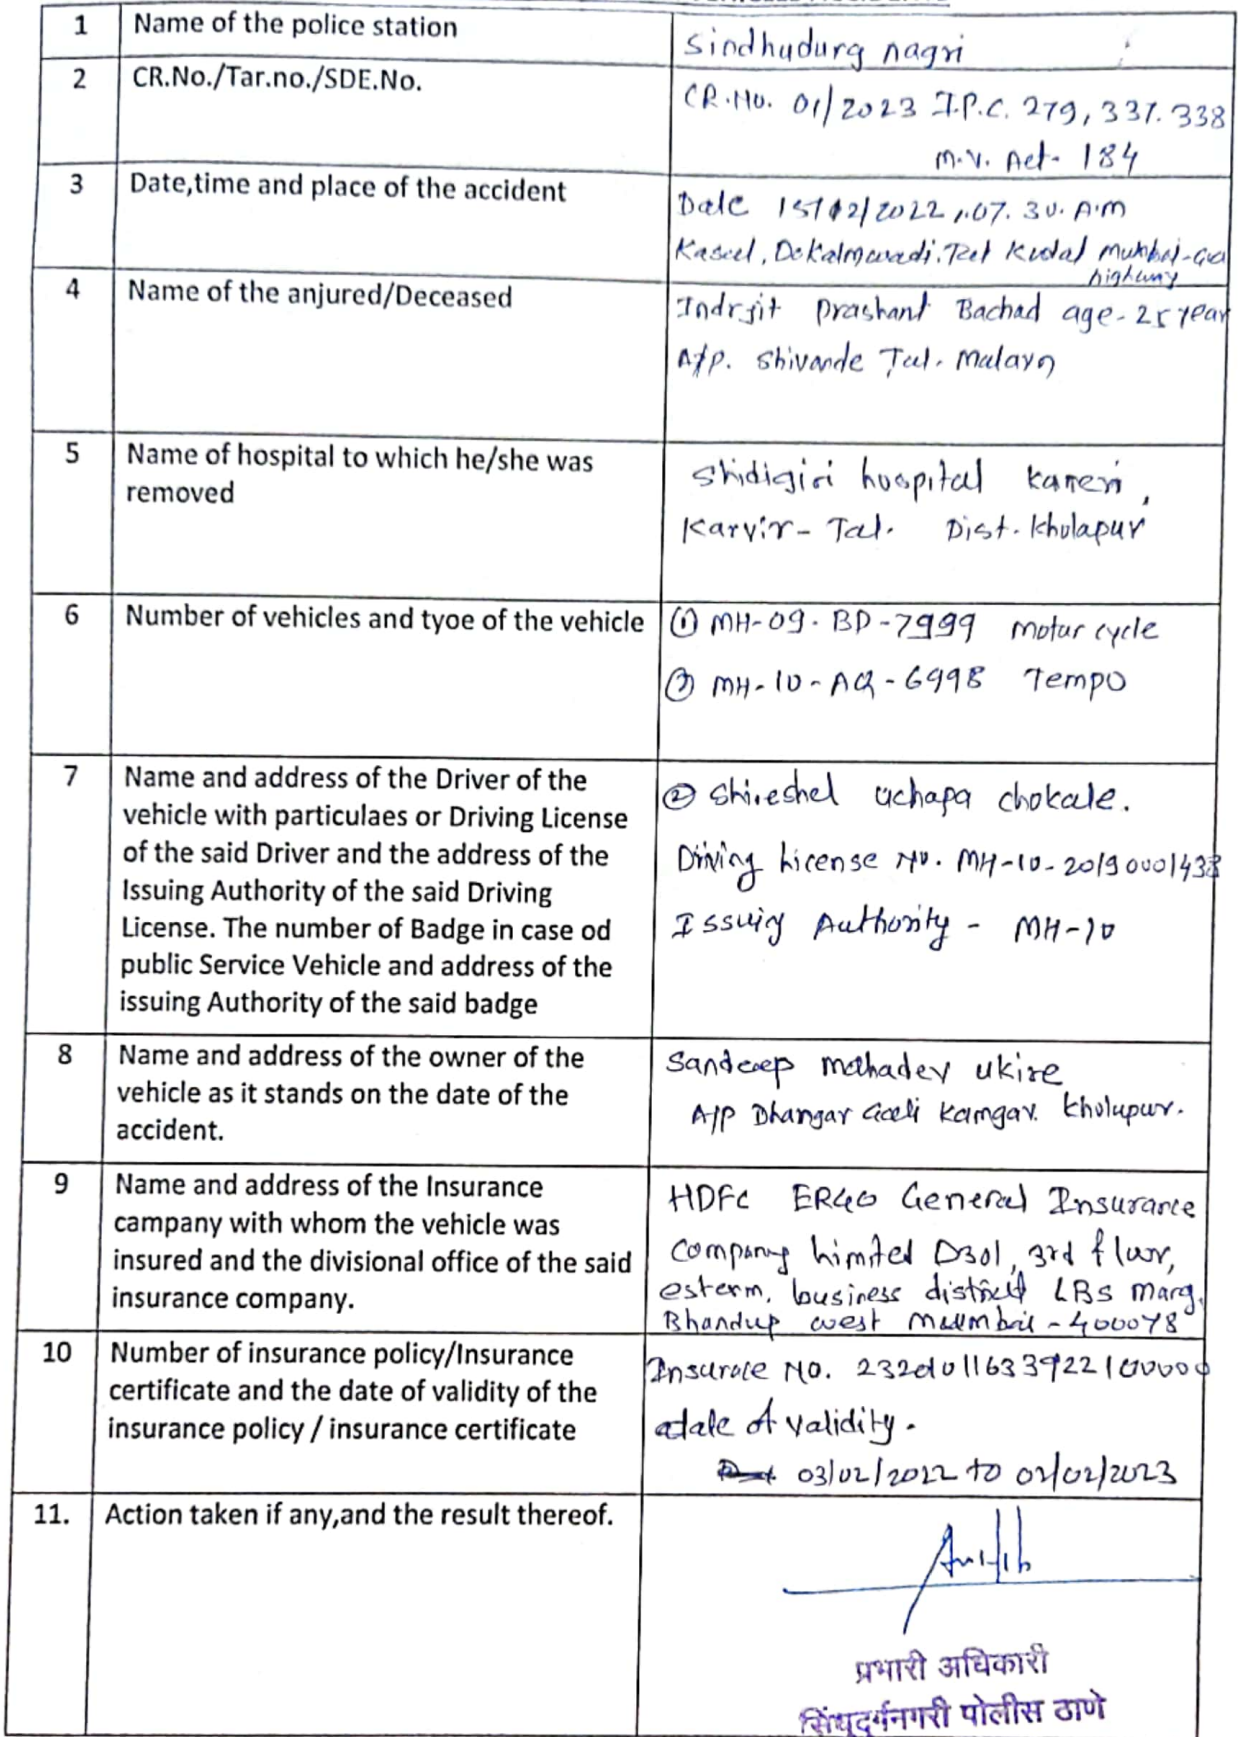 1 Name of the police station Sindhudurg nagri
2 CR.No./Tar.no./SDE.No. CR.No. 01/2023 I.P.C. 279, 337. 338
M.V. Act- 184
3 Date,time and place of the accident Date 15/12/2022, 07.30. A.M
Kasal, Mumbai-Goa
highway
4 Name of the anjured/Deceased Indrjit Prashant Bachad age-25 year
A/p. Shivande Tal. Malavn
5 Name of hospital to which he/she was
removed
Shidigiri hospital Kaneri,
Karvir- Tal. Dist. Kholapur
6 Number of vehicles and tyoe of the vehicle ① MH-09-BD-7999 Motor cycle
② MH-10-AQ-6998 Tempo
7 Name and address of the Driver of the
vehicle with particulaes or Driving License
of the said Driver and the address of the
Issuing Authority of the said Driving
License. The number of Badge in case od
public Service Vehicle and address of the
issuing Authority of the said badge
② chokale.
Driving License No. MH-10-20190001433
Issuig Authority - MH-10
8 Name and address of the owner of the
vehicle as it stands on the date of the
accident.
Sandeep Mahadev ukire
A/P Dhangar Galli Kamgav. Kholupur.
9 Name and address of the Insurance
campany with whom the vehicle was
insured and the divisional office of the said
insurance company.
HDFC ERGO General Insurance
Company Limited D301, 3rd floor,
business LBS Marg.
Bhandup west Mumbai - 400078
10 Number of insurance policy/Insurance
certificate and the date of validity of the
insurance policy / insurance certificate
No.
date of validity.
03/02/2022 to 02/02/2023
11. Action taken if any,and the result thereof.
प्रभारी अधिकारी
सिंधुदुर्गनगरी पोलीस ठाणे